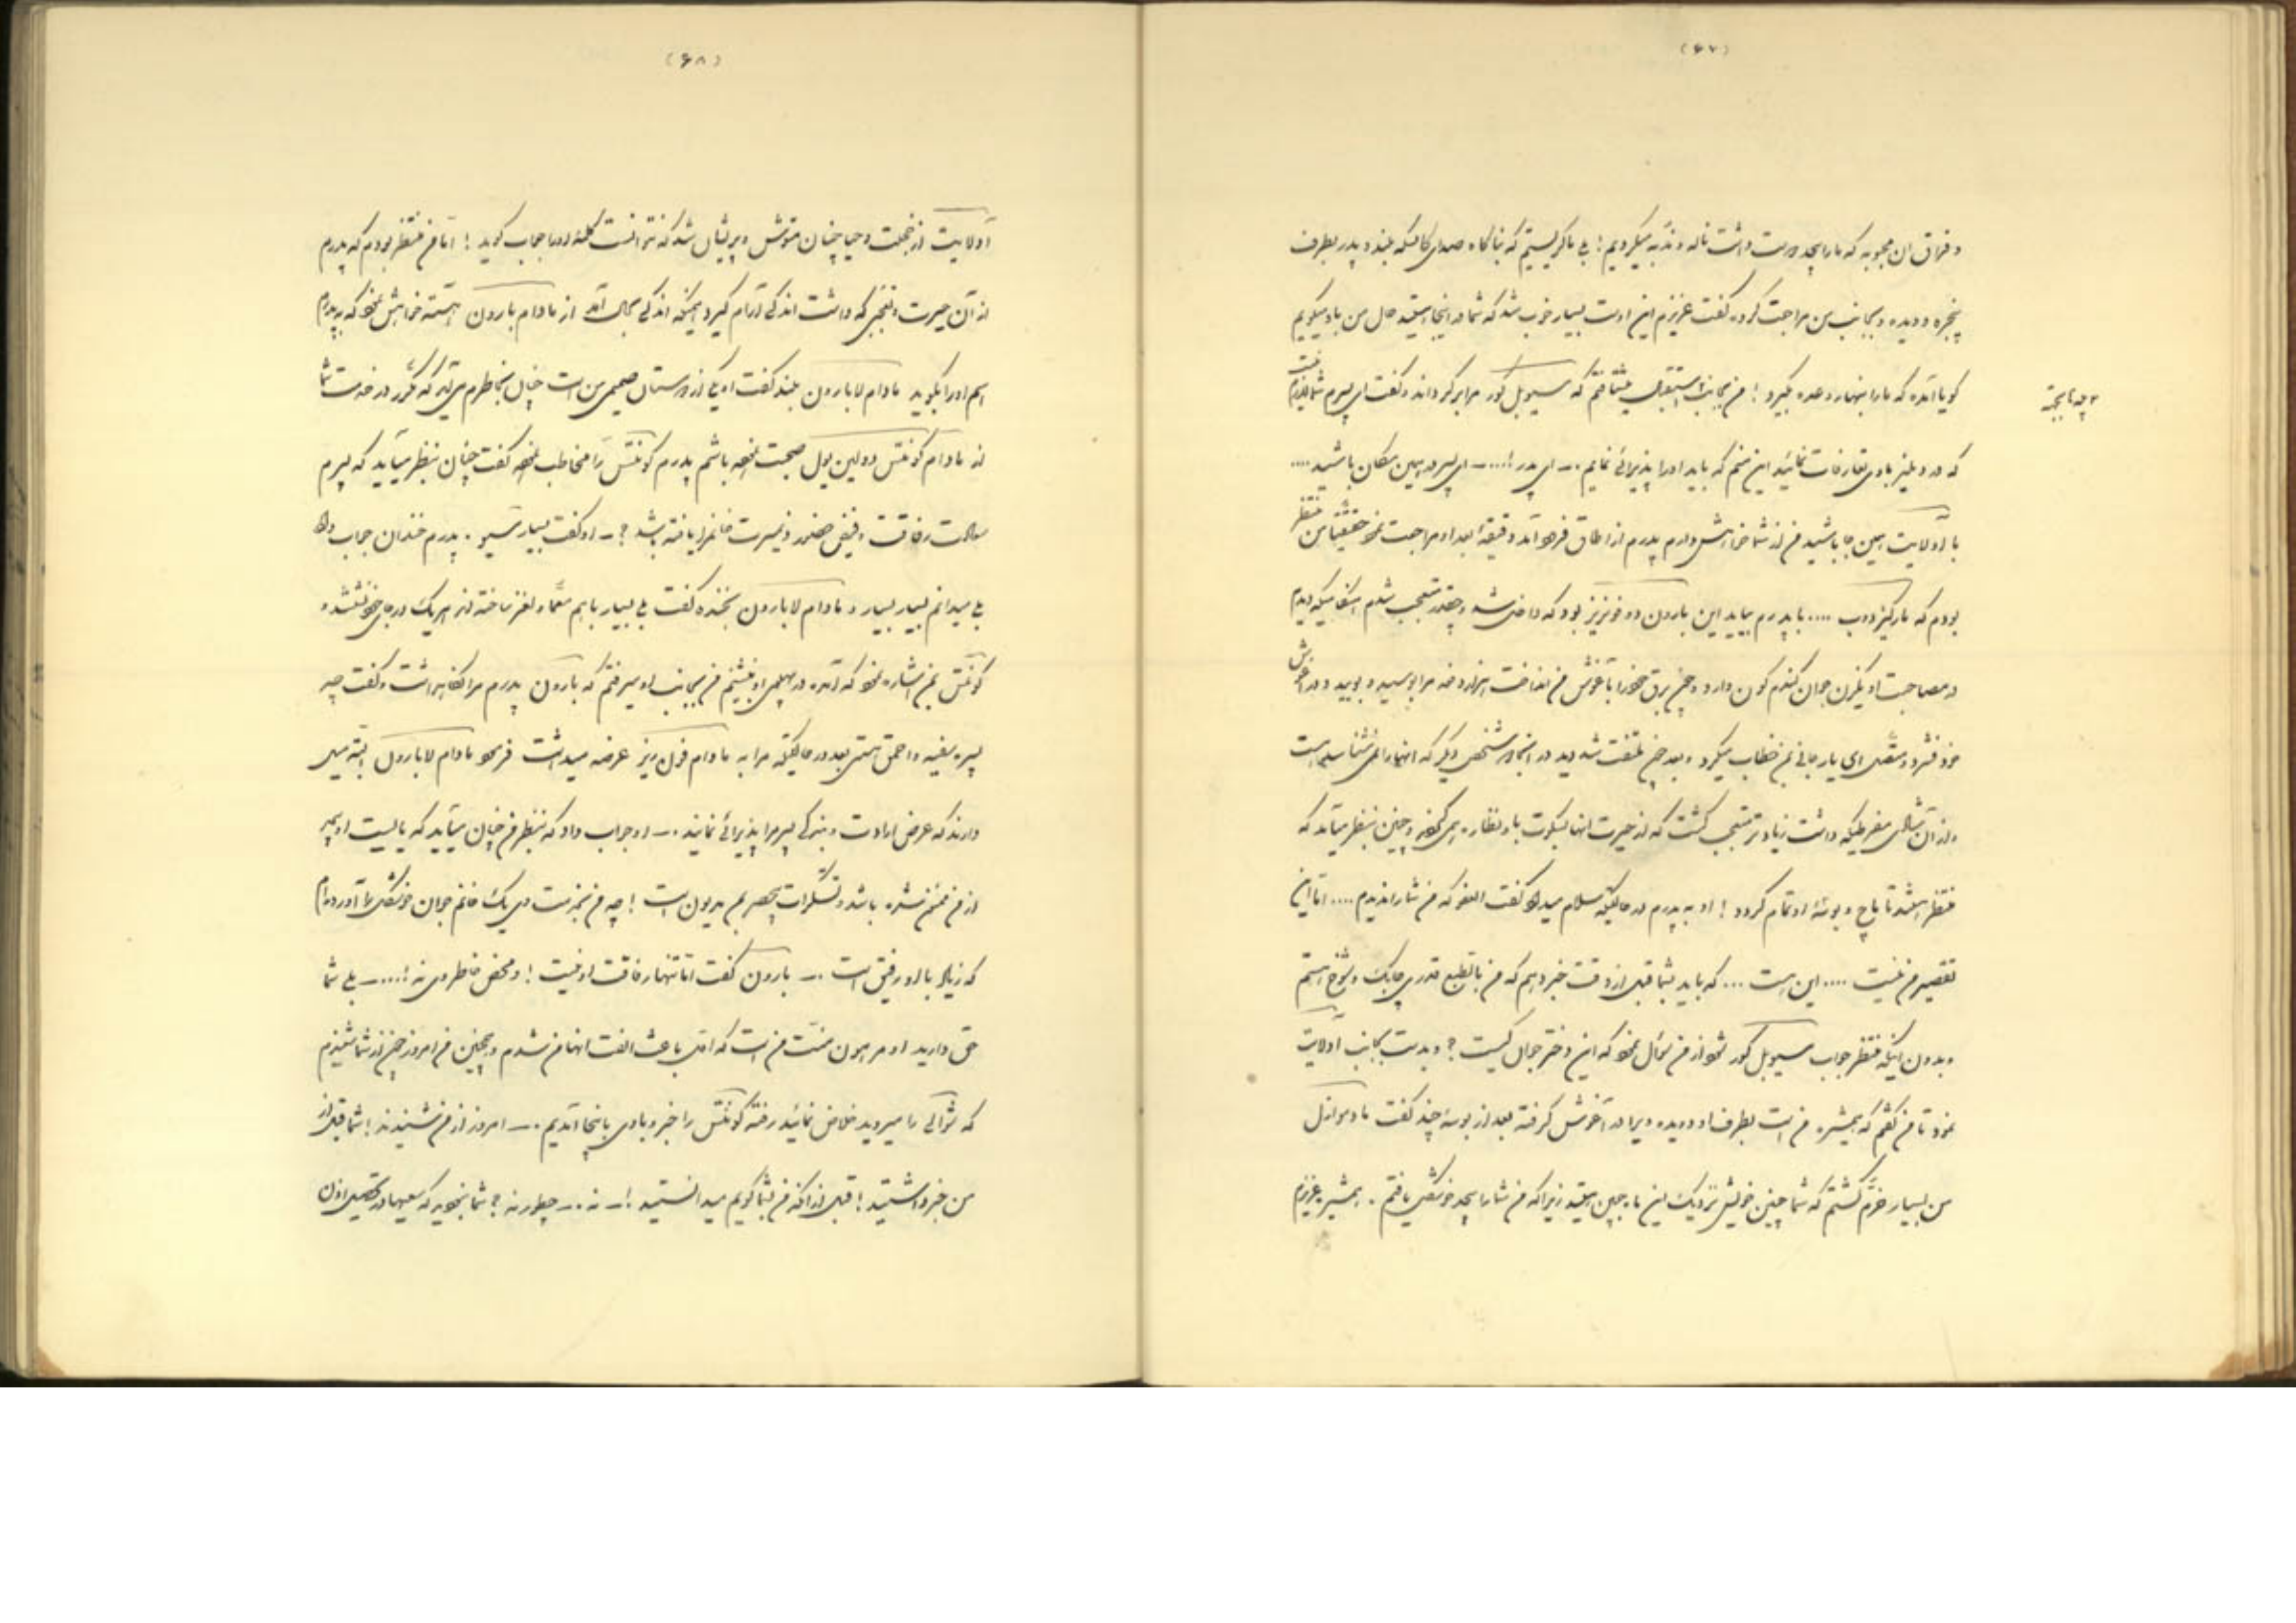 (۶۷)
و فراق ان محبوبه که ما را بیحد دوست داشت ناله و ندبه میکردیم! می باگریستیم که بناگاه صدای کالسکه بلند و پدر بطرف
پنجره دویده و بجانب من مراجعت کرده گفت عزیزم این اوست بسیار خوب شد که شما در اینجا هستید حال من باو میگویم
گویا آمده که ما را بنهار وعده بگیرد! من بجانب استقبال میشتافتم که سیوبل کور مرا برگرداند و گفت ای پسرم شما لازم نیست
که در دهلیز باوی تعارفات نمائید این منم که باید او را پذیرائی نمایم .ـ ای پدر !...ـ ای پسر در همین مکان باشید ....
با آدلایت همین جا باشید من از شما خواهش دارم پدرم از اطاق فرود آمد دقیقهٔ بعد او مراجعت نمود حقیقتا من منتظر
بودم که مارکیز دوب .... با پدرم بیاید این بارون دو فونریز بود که داخل شد و چقدر متعجب شدم هنگامیکه دیدم
در مصاحبت او یکزن جوان گندم گون دارد و چون برق خود را بآغوش من انداخت هزار دفعه مرا بوسید و بویید و در آغوش
خود فشرد و متصل ای یار جانی بمن خطاب میکرد و بعد چون ملتفت شد دید در انجا دو شخص دیگر که انها را نمی شناسد هست
و از آن شادی مفرطیکه داشت زیادتر متعجب گشت که از حیرت انها بسکوت باو نظاره همی کنند و چنین بنظر میآمد که
منتظر هستند تا ماچ و بوسهٔ او تمام گردد! او به پدرم در حالتیکه سلام میداد گفت العفو که من شما را ندیدم .... اما این
تقصیر من نیست .... این است ... که باید بشما قبل از وقت خبر دهم که من بالطبع قدری چابک و شوخ هستم
و بدون اینکه منتظر جواب سیوبل کور شود از من سوال نمود که این دختر جوان کیست؟ و بدست بجانب آدلایت
نمود تا من گفتم که همشیره من است بطرف او دویده ویرا در آغوش گرفته بعد از بوسهٔ چند گفت مادموازل
من بسیار خرم گشتم که شما چنین خویش نزدیک این ماه جبین هستید زیرا که من شما را بیحد خوشگل یافتم . همشیره عزیزم
(۶۸)
آدلایت از خجلت و حیا چنان متوش و پریشان شد که نتوانست کلمهٔ او را جواب گوید! اما من منتظر بودم که پدرم
از آن حیرت و تعجبی که داشت اندکی آرام گیرد همینکه اندکی بحال آمد از مادام بارون آهسته خواهش نمود که به پدرم
اسم او را بگوید مادام لابارون بلند گفت او یکی از دوستان صمیمی من است چنان بخاطرم می آید که مکرر در خدمت شما
از مادام کونتس دولین یول صحبت نموده باشم پدرم کونتس را مخاطب نموده گفت چنان بنظر میآید که پسرم
سعادت رفاقت و فیض حضور و بصیرت خانم را یافته باشد؟ ـ او گفت بسیار مسیو . پدرم خندان جواب داد
بلی میدانم بسیار بسیار و مادام لابارون بخنده گفت بلی بسیار باهم معما و لغز ساخته اند هریک در جای خود نشسته و
کونتس بمن اشاره نمود که آمده در پهلوی او بنشینم من بجانب او میرفتم که بارون پدرم مرا نگاه داشت و گفت چه
پسره سفیه و احمق هستی بعد در حالتیکه مرا به مادام فول ریز عرضه میداشت فرمود مادام لابارون البته میل
دارند که عرض ارادت و بندگی پسر مرا پذیرائی نمایند .ـ او جواب داد که بنظر من چنان میآید که بایست او بیحد
از من ممنون شده باشد و تشکرات بیحصر بمن مدیون است! چه من بخدمت وی یک خانم جوان خوشگلی را آورده ام
که زیاد با او رفیق است .ـ بارون گفت اما تنها رفاقت او نیست! و محض خاطر وی نه !....ـ بلی شما
حق دارید او مرهون منت من است که اول باعث الفت انها من شدم و همچنین من امروز چون از شما شنیدم
که شوالی را میروید خلاص نمائید رفته کونتس را خبر و باوی باینجا آمدیم .ـ امروز از من شنیدند! شما قبل از
من خبر داشتید! قبل از آنکه من بشما گویم میدانستید!ـ نه .ـ چطور نه؟ شما بخوبید که سعیها در تحصیل اذن